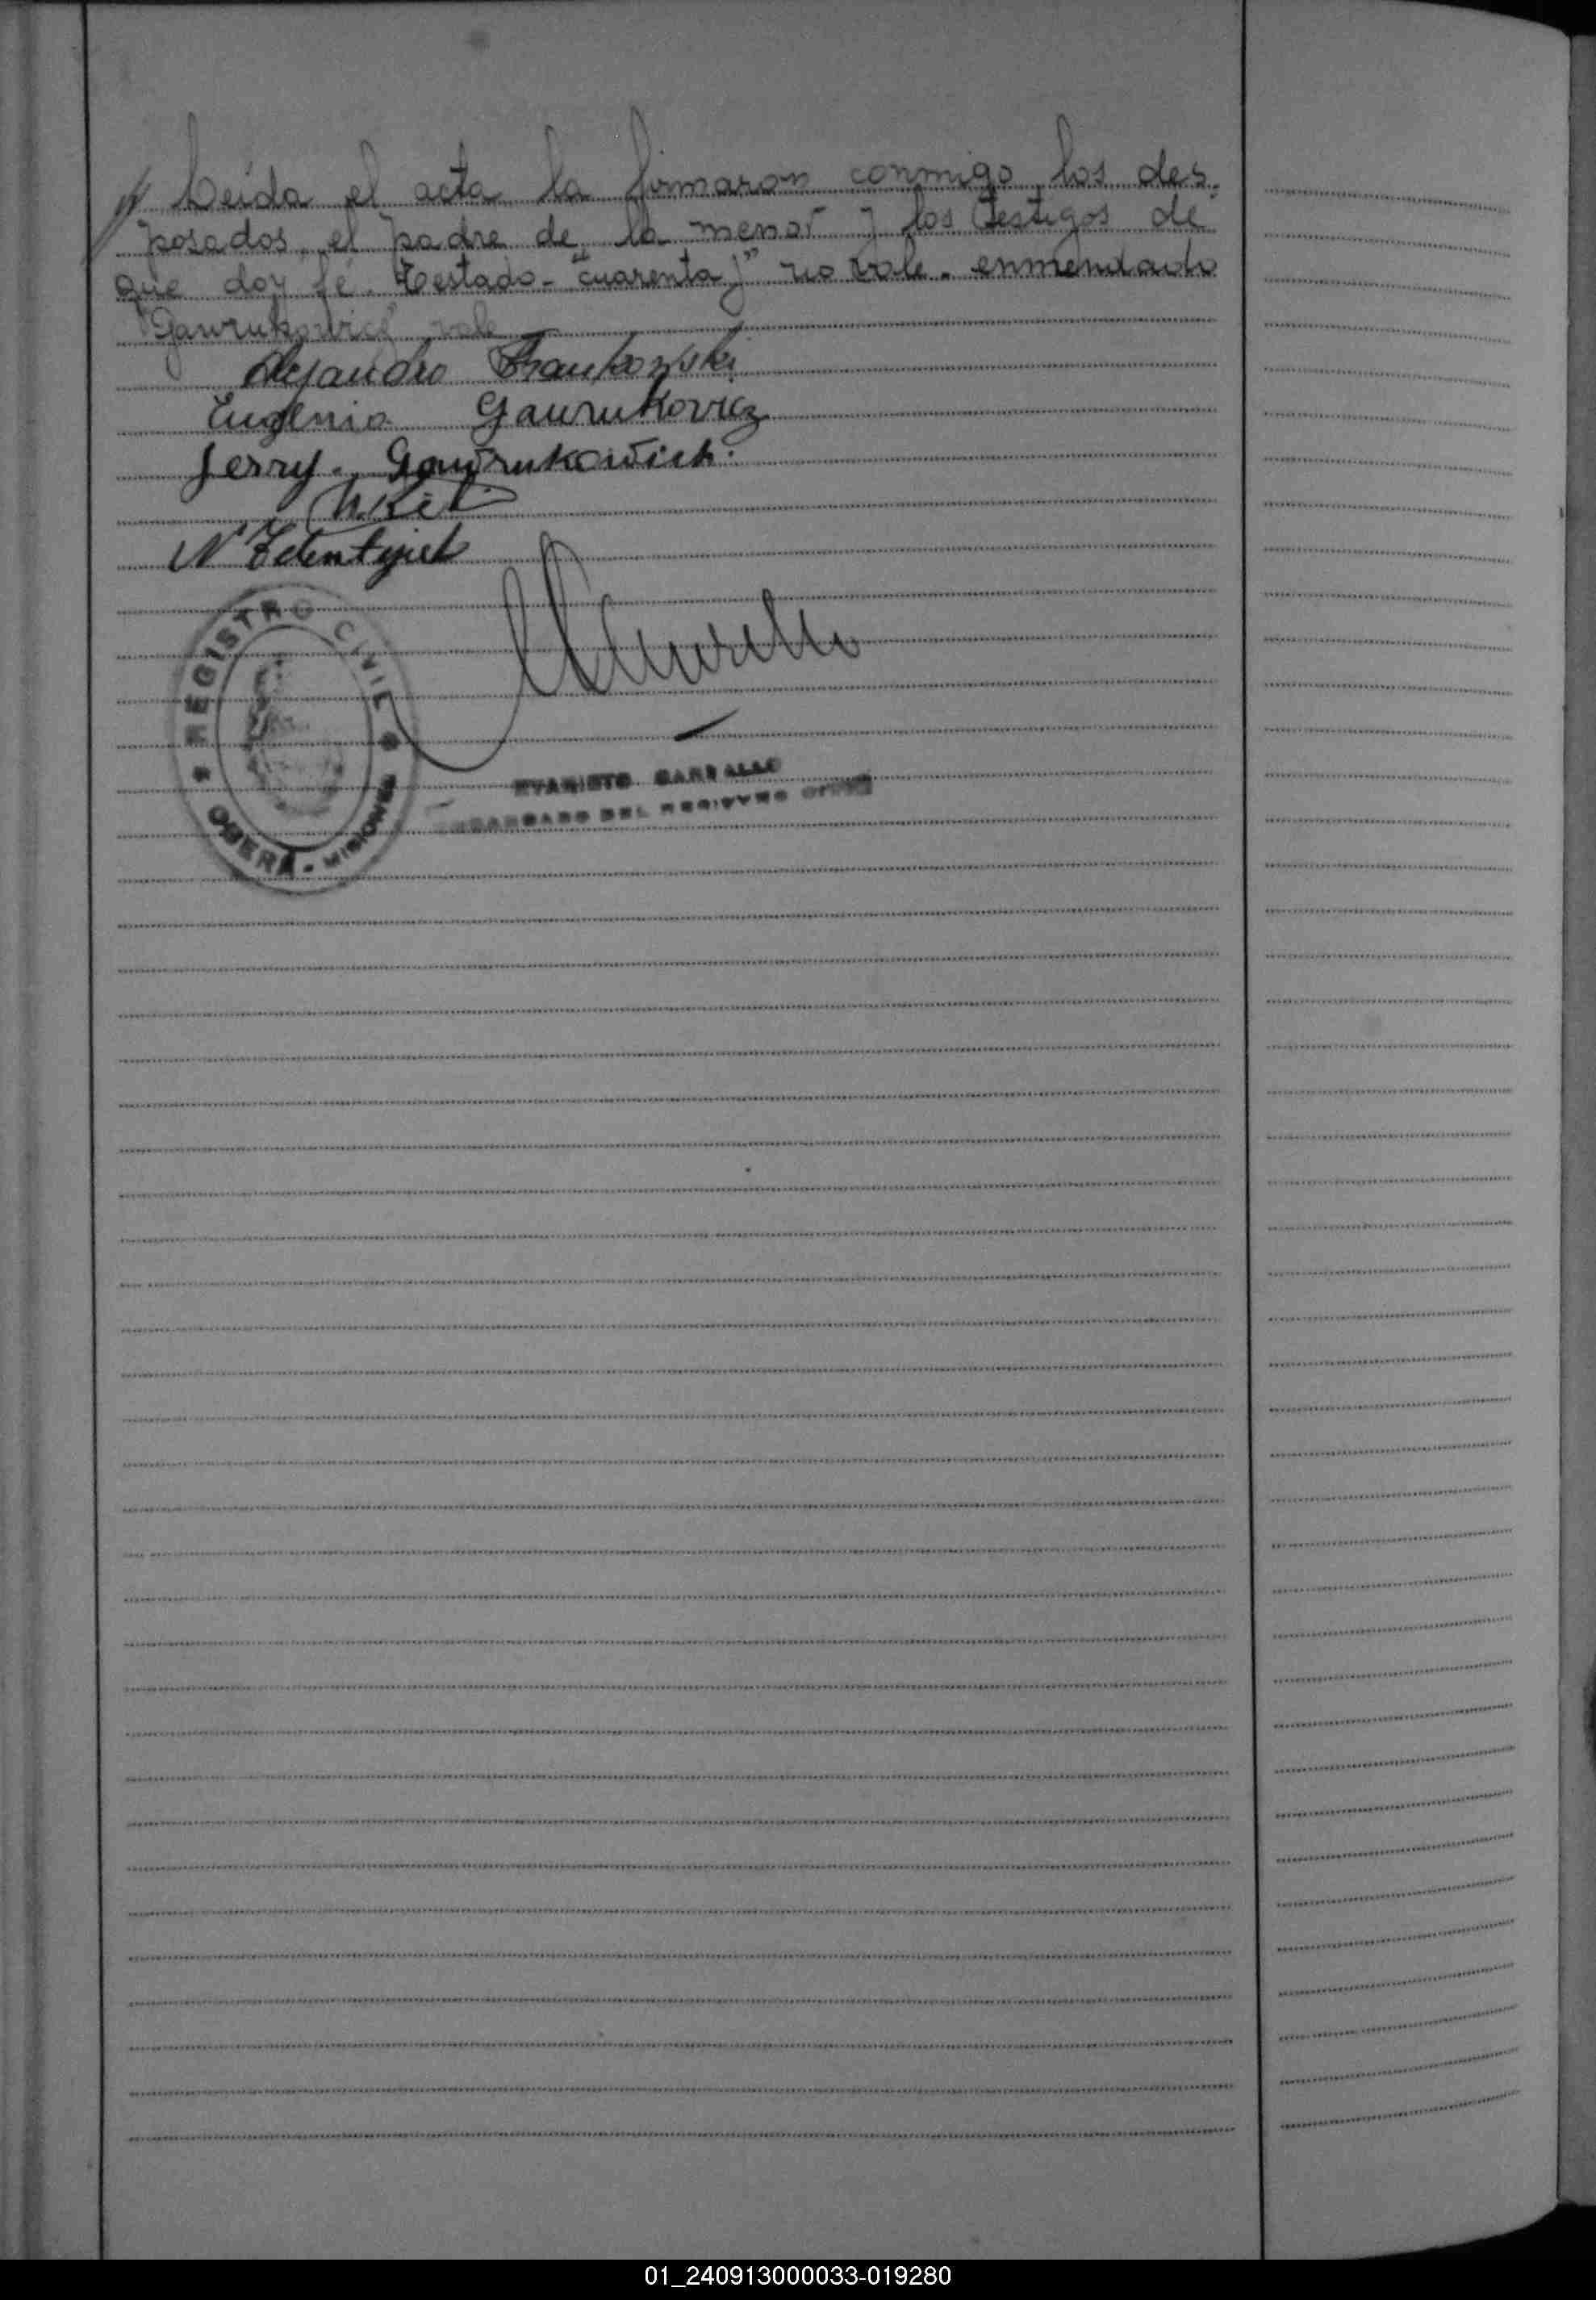 // Leída el acta la firmaron conmigo los des-
posados, el padre de la menor y los testigos de
que doy fé. Testado - "cuarenta y" no vale - enmendado
"Gawrukowicz" vale
Alejandro
Eugenia Gawrukovicz
Jerry. Gawrukowich.
N.
REGISTRO CIVIL
OBERÁ - MISIONES
EVARISTO
ENCARGADO DEL REGISTRO CIVIL
01_240913000033-019280